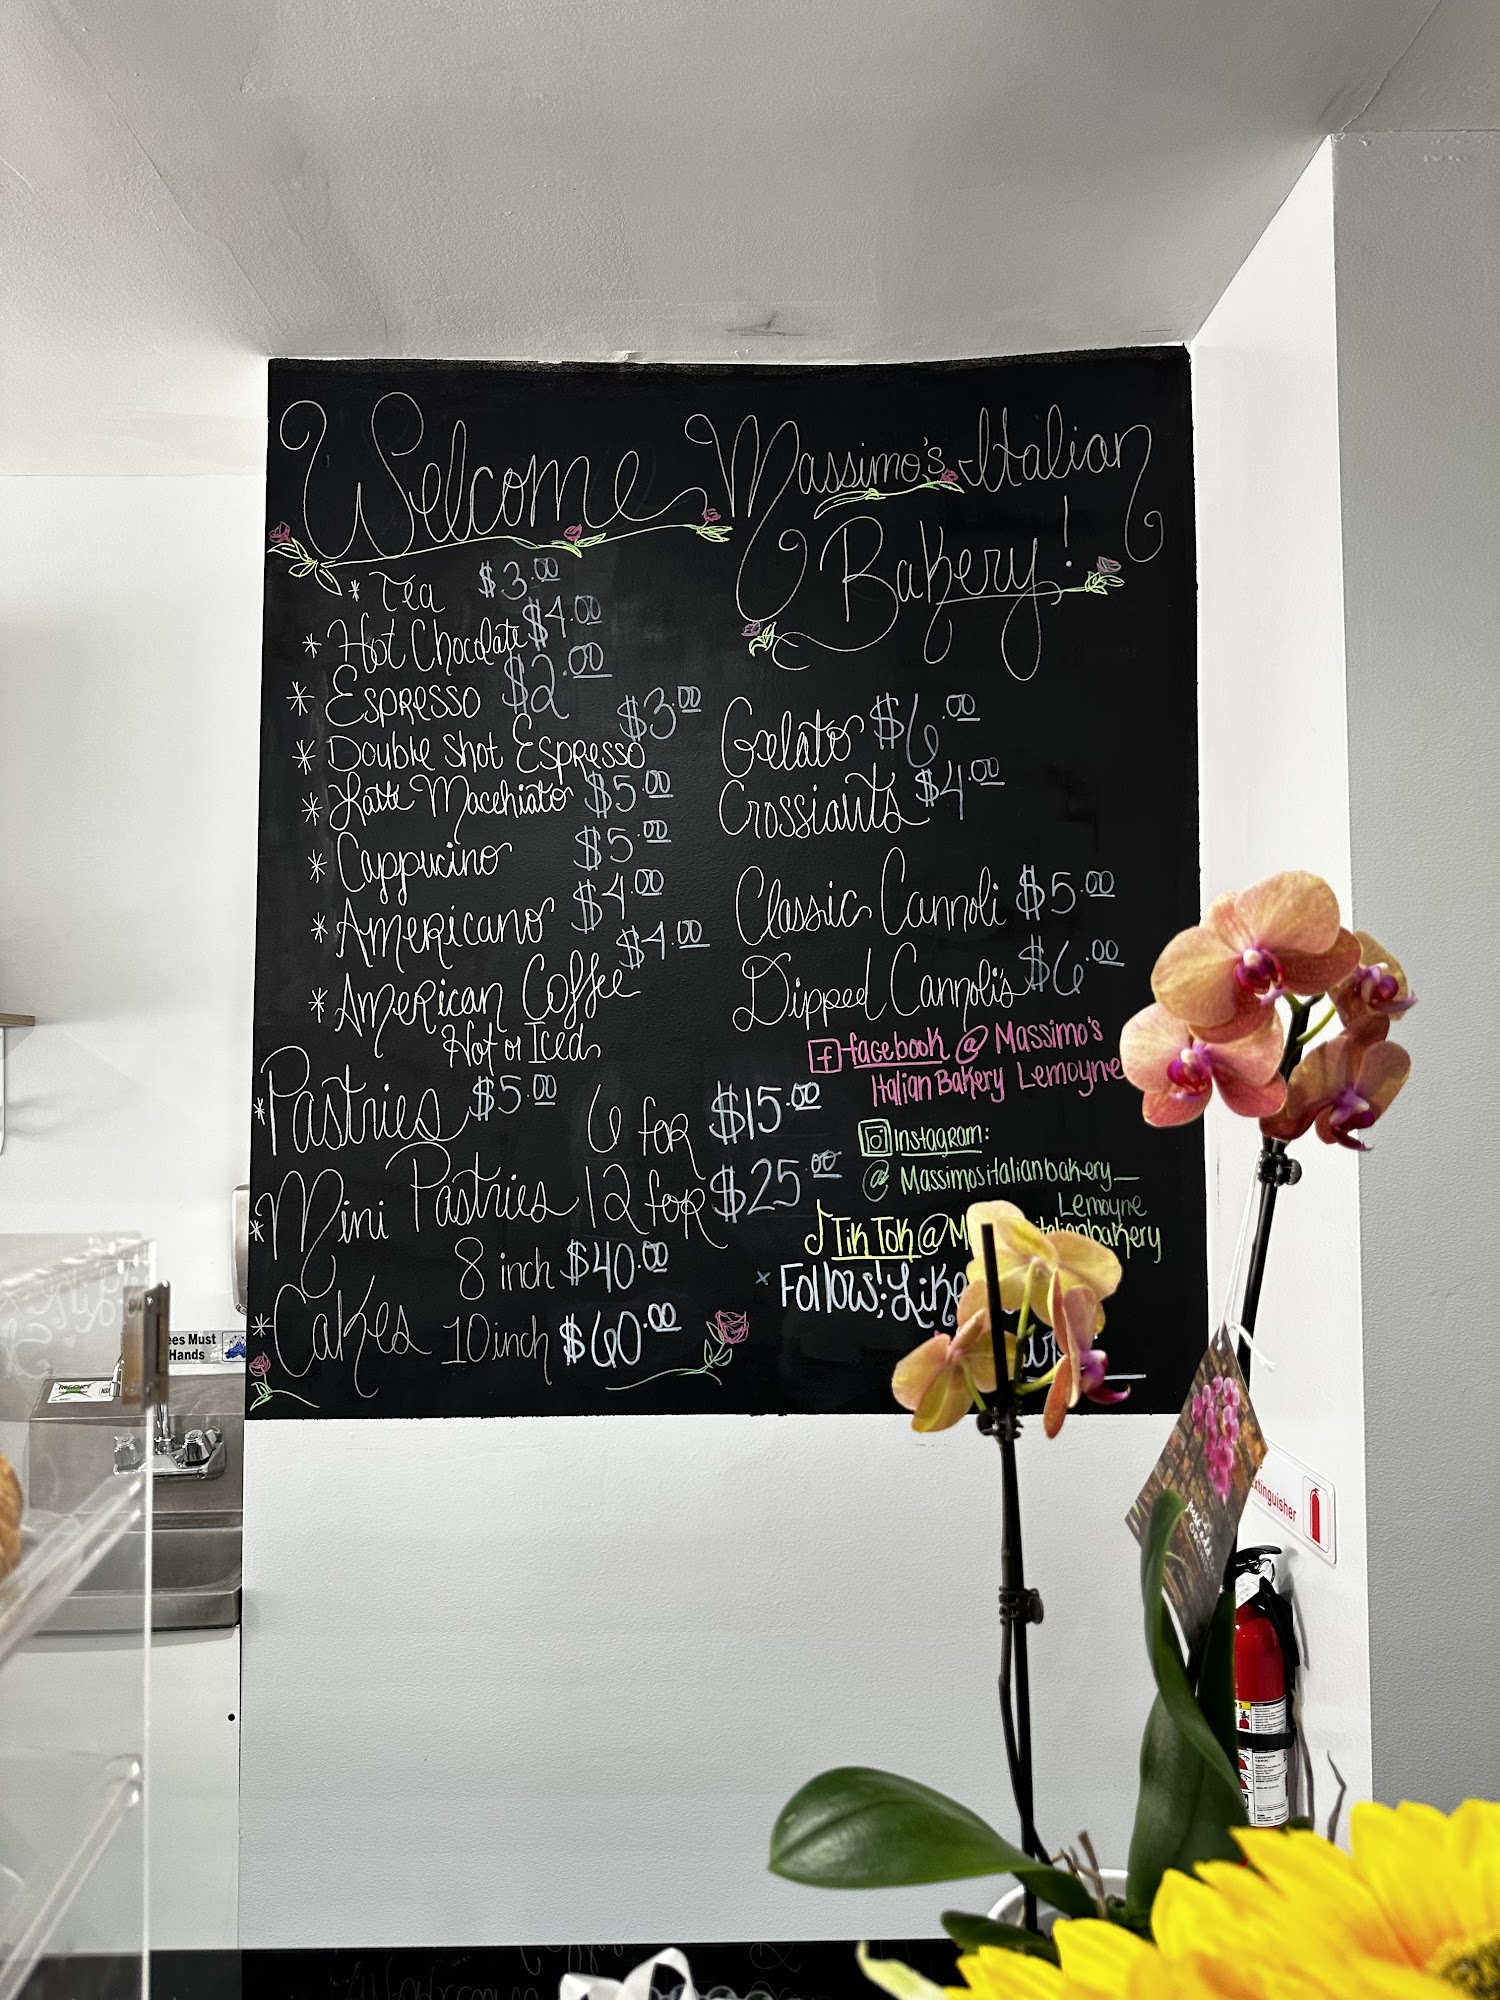 Welcome Massimo's Italian
Bakery!
* Tea $3.00
* Hot Chocolate $4.00
* Espresso $2.00
* Double Shot Espresso $3.00
* Latte Macchiato $5.00
* Cappucino $5.00
* Americano $4.00
* American Coffee $4.00
Hot or Iced
* Pastries $5.00
* Mini Pastries 6 for $15.00
12 for $25.00
* Cakes 8 inch $40.00
10 inch $60.00
Gelato $6.00
Crossiants $4.00
Classic Cannoli $5.00
Dipped Cannoli's $6.00
f facebook @ Massimo's
Italian Bakery Lemoyne
Instagram:
@ Massimositalianbakery_
Lemoyne
TikTok @ italianbakery
* Follow! Like
ees Must
Hands
xtinguisher